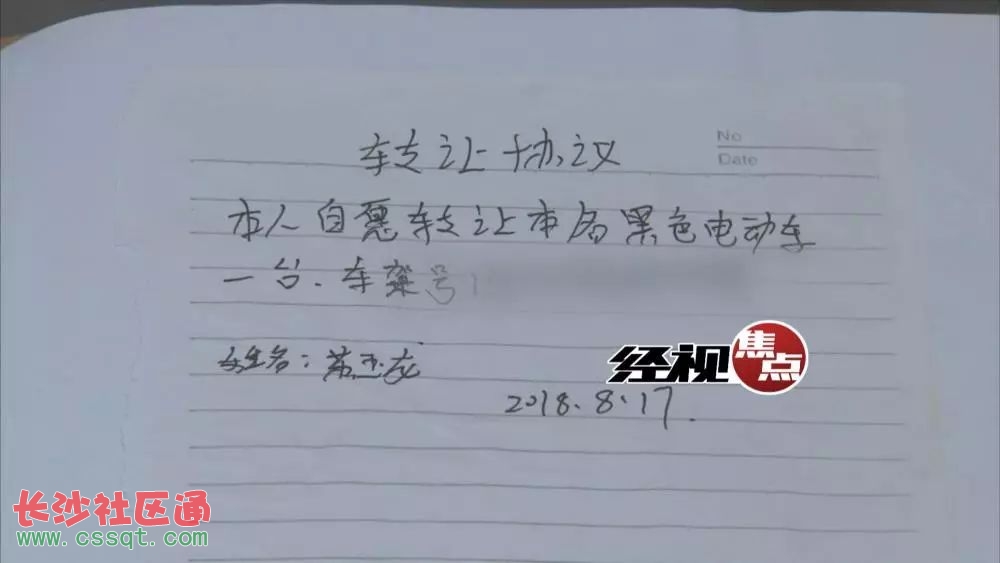 No
Date
转让协议
本人自愿转让本名黑色电动车
一台.车架号
姓名:
经视焦点
2018.8.17.
长沙社区通
www.cssqt.com